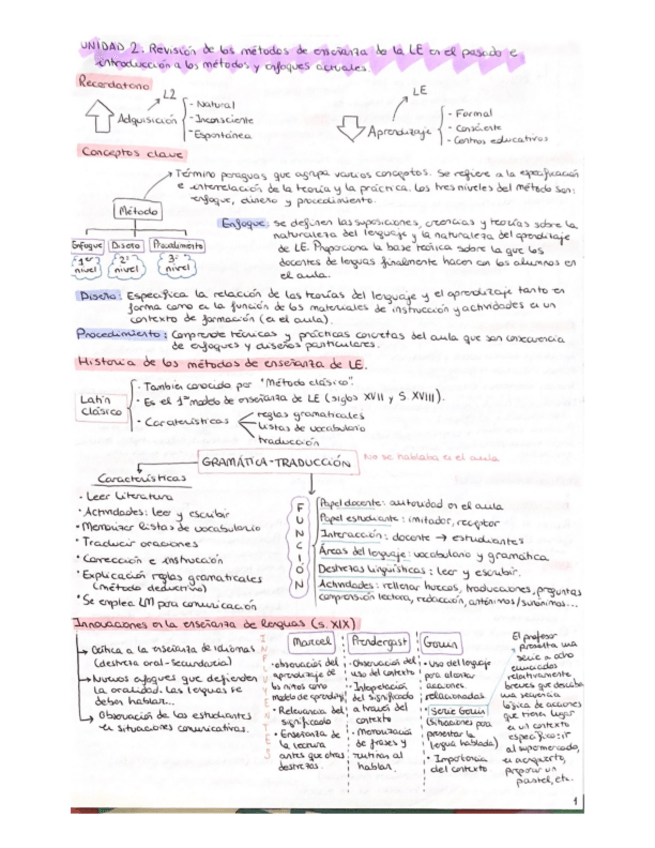 UNIDAD 2. Revisión de los métodos de enseñanza de la LE en el pasado e
introducción a los métodos y enfoques actuales.
Recordatorio
L2
Adquisición
- Natural
- Inconsciente
- Espontánea
LE
Aprendizaje
- Formal
- Consciente
- Centros educativos
Conceptos clave
Término paraguas que agrupa varios conceptos. Se refiere a la especificación
e interrelación de la teoría y la práctica. Los tres niveles del método son:
enfoque, diseño y procedimiento.
Método
Enfoque Diseño Procedimiento
1er nivel
2º nivel
3er nivel
Enfoque: se definen las suposiciones, creencias y teorías sobre la
naturaleza del lenguaje y la naturaleza del aprendizaje
de LE. Proporciona la base teórica sobre la que los
docentes de lenguas finalmente hacen con los alumnos en
el aula.
Diseño: Especifica la relación de las teorías del lenguaje y el aprendizaje tanto en
forma como en la función de los materiales de instrucción y actividades en un
contexto de formación (en el aula).
Procedimiento: Comprende técnicas y prácticas concretas del aula que son consecuencia
de enfoques y diseños particulares.
Historia de los métodos de enseñanza de LE.
Latín
Clásico
· También conocida por "Método clásico".
· Es el 1er modelo de enseñanza de LE (siglos XVII y S. XVIII).
· Características
reglas gramaticales
listas de vocabulario
traducción
GRAMÁTICA-TRADUCCIÓN
No se hablaba en el aula
Características
· Leer Literatura
· Actividades: leer y escribir
· Memorizar listas de vocabulario
· Traducir oraciones
· Corrección e instrucción
· Explicación reglas gramaticales
(método deductivo)
· Se emplea LM para comunicación
FUNCIÓN
Papel docente: autoridad en el aula
Papel estudiante: imitador, receptor
Interacción: docente → estudiantes
Áreas del lenguaje: vocabulario y gramática
Destrezas lingüísticas: leer y escribir.
Actividades: rellenar huecos, traducciones, preguntas
comprensión lectora, redacción, antónimos/sinónimos...
Innovaciones en la enseñanza de lenguas (s. XIX).
Crítica a la enseñanza de idiomas
(destreza oral - secundaria)
Nuevos enfoques que defienden
la oralidad. Las lenguas se
deben hablar...
Observación de los estudiantes
en situaciones comunicativas.
INFLUYENTES
Marcel
· Observación del
aprendizaje de
los niños como
modelo de aprendizaje
· Relevancia del
significado
· Enseñanza de
la lectura
antes que otras
destrezas.
Prendergast
· Observación del
uso del contexto
· Interpretación
del significado
a través del
contexto
· Memorización
de frases y
rutinas al
hablar.
Gouin
· Uso del lenguaje
para alcanzar
acciones
relacionadas.
· Serie Gouin
(situaciones para
presentar la
lengua hablada)
· Importancia
del contexto.
El profesor
presenta una
serie a ocho
enunciados
relativamente
breves que describa
una secuencia
lógica de acciones
que tienen lugar
en un contexto
específico: ir
al supermercado,
preparar un
pastel, etc.
1